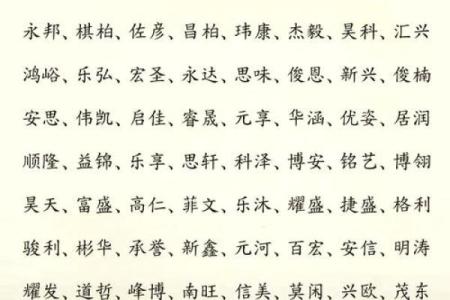 永邦、棋柏、佐彦、昌柏、玮康、杰毅、昊科、汇兴
鸿峪、乐弘、宏圣、永达、思味、俊恩、新兴、俊楠
安思、伟凯、启佳、睿晟、元享、华涵、优姿、居润
顺隆、益锦、乐享、思轩、科泽、博安、铭艺、博翎
昊天、富盛、高仁、菲文、乐沐、耀盛、捷盛、格利
骏利、彬华、承誉、新鑫、元河、百宏、安信、明涛
耀发、道哲、峰博、南旺、信美、莫闲、兴欧、茂东